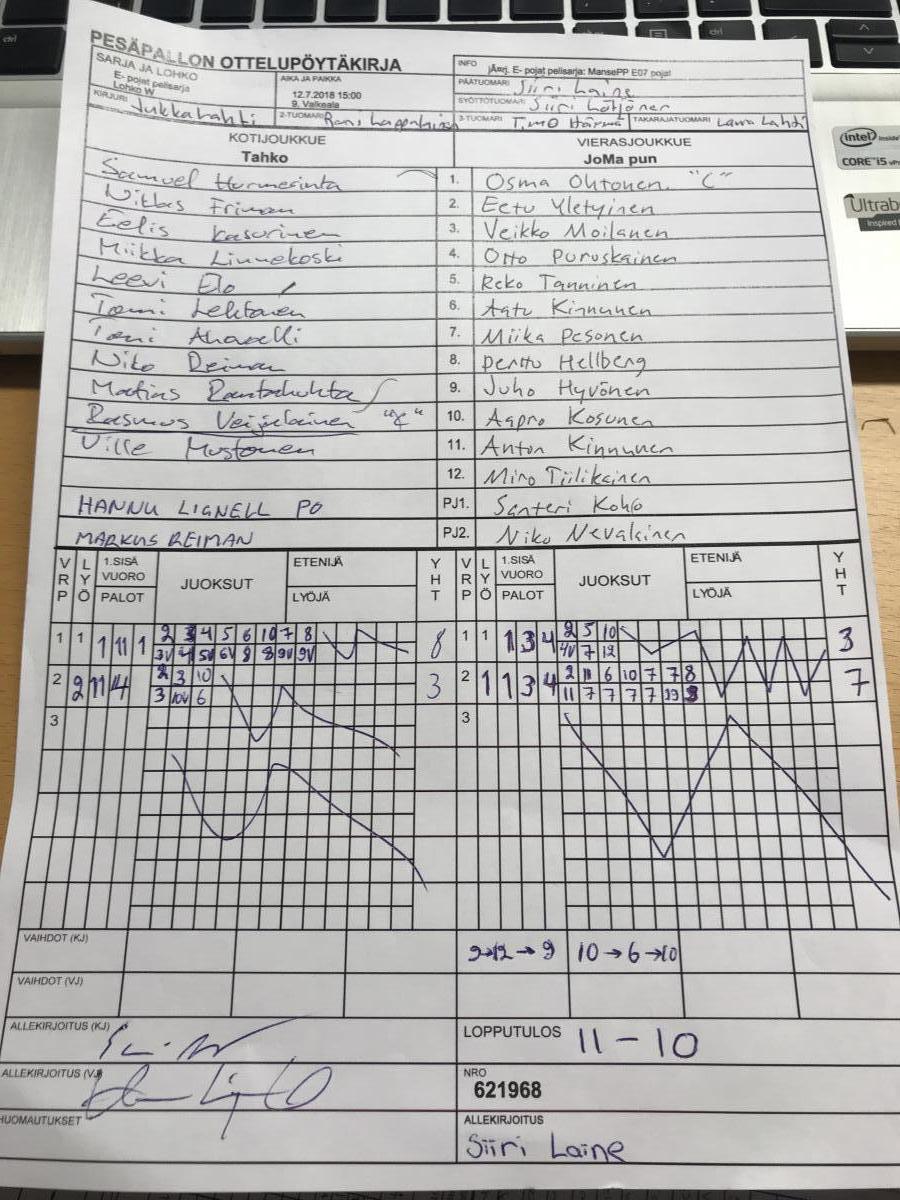 PESÄPALLON OTTELUPÖYTÄKIRJA
SARJA JA LOHKO
E- pojat pelisarja
Lohko W
AIKA JA PAIKKA
12.7.2018 15:00
9. Valkeala
INFO
jÄrrj. E- pojat pelisarja: MansePP E07 pojat
PÄÄTUOMARI Siiri Laine
SYÖTTÖTUOMARI Siiri
KIRJURI Jukka Lahti
2-TUOMARI
3-TUOMARI Timo Härmä
TAKARAJATUOMARI Laura Lahti
KOTIJOUKKUE
Tahko
VIERASJOUKKUE
JoMa pun
Samuel Hurmerinta 1. Osma Ohtonen "C"
Niklas Friman 2. Eetu Yletyinen
Eelis Kasurinen 3. Veikko Moilanen
Miikka Linnekoski 4. Otto Puruskainen
Leevi Elo 5. Reko Tanninen
Tomi Lehtonen 6. Aatu Kinnunen
Toni 7. Miika Pesonen
Niko Reiman 8. Perttu Hellberg
Matias 9. Juho Hyvönen
Rasmus Veijalainen "C" 10. Aapro Kosunen
Ville Mustonen 11. Anton Kinnunen
12. Miro Tiilikainen
HANNU LIGNELL PO PJ1. Santeri Kohо
MARKUS REIMAN PJ2. Niko Nevalainen
VRP LYÖ 1.SISÄ VUORO PALOT JUOKSUT ETENIJÄ LYÖJÄ YHT VRP LYÖ 1.SISÄ VUORO PALOT JUOKSUT ETENIJÄ LYÖJÄ YHT
1 1 1 11 1 2 3 4 5 6 10 7 8 8 1 1 1 3 4 2 5 10 3
3V 4 5V 6V 8 8 9V 9V 4V 7 12
2 2 11 4 2 3 10 3 2 1 1 3 4 2 11 6 10 7 7 8 7
3 10V 6 11 7 7 7 7 8
3 3
VAIHDOT (KJ) 9→12→9 10→6→10
VAIHDOT (VJ)
ALLEKIRJOITUS (KJ)
LOPPUTULOS 11-10
ALLEKIRJOITUS (VJ)
NRO
621968
HUOMAUTUKSET
ALLEKIRJOITUS
Siiri Laine
ctrl
ctrl
intel inside
CORE i5
Ultrab
Inspired